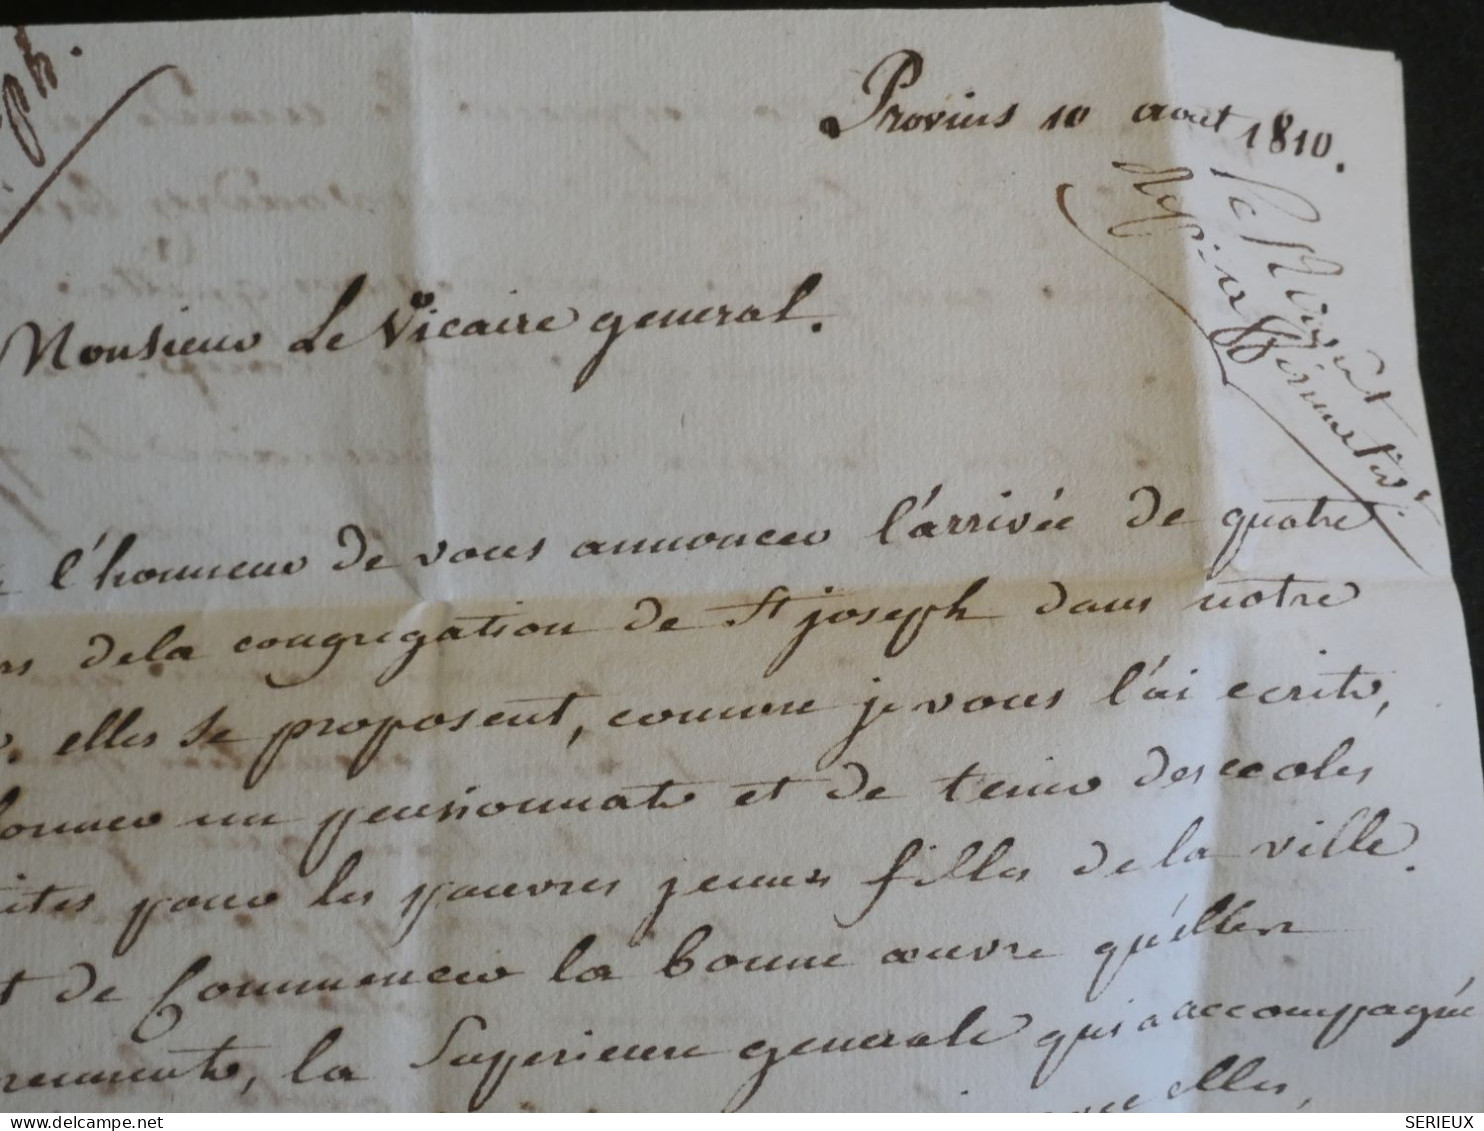 ph.
Provins 10 aout 1810.
Le 
Monsieur Le Vicaire general.
l'honneur de vous annoncer l'arrivée de quatre
rs dela congregation de St joseph dans notre
elles se proposent, comme je vous l'ai ecrit,
donner un pensionnat et de tenir des ecoles
ites pour les pauvres jeunes filles de la ville.
t de Commencer la bonne œuvre qu'elles
la Superieure generale qui a accompagné
elles,
SERIEUX